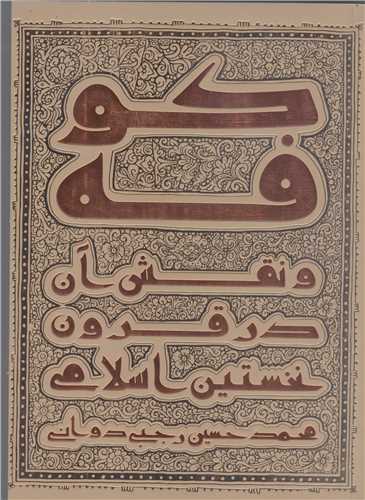 کو
فه
و نقش آن
در قرون
نخستین اسلامی
محمد حسین رجبی دوانی